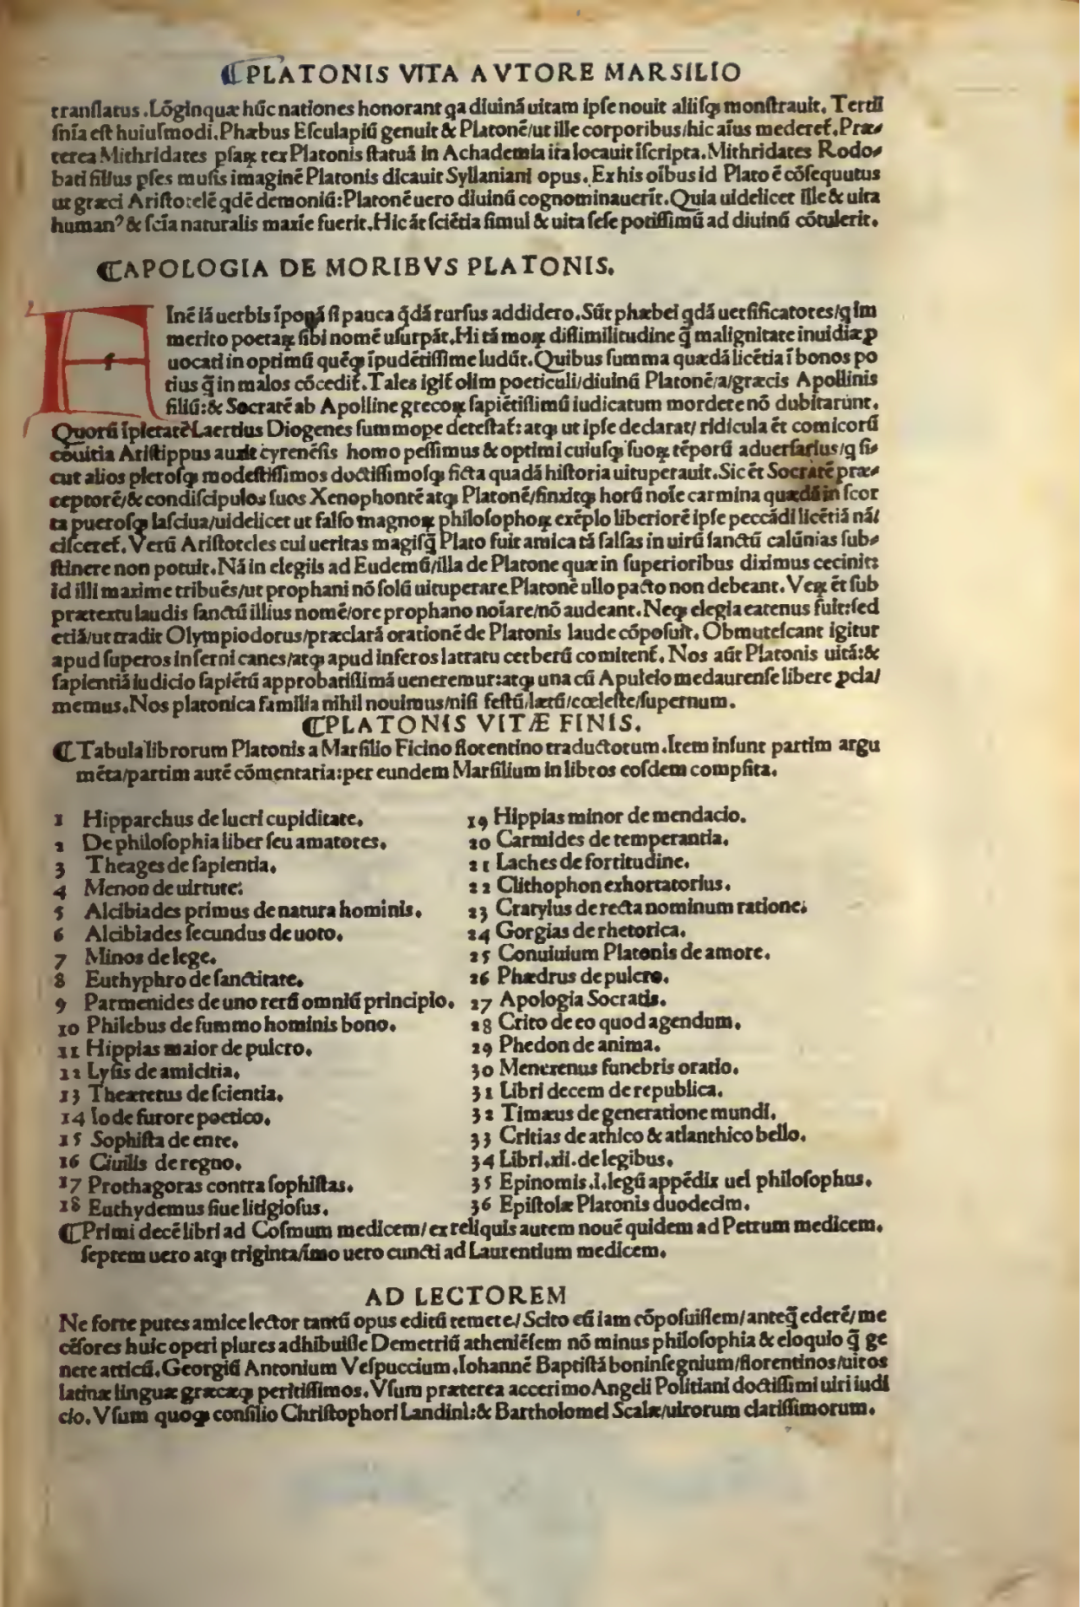 ❡PLATONIS VITA AVTORE MARSILIO
tranſlatus.Lõginquæ hũc nationes honorant qa diuinã uitam ipſe nouit aliiſqꝫ monſtrauit. Tertii
ſnĩa eſt huiuſmodi.Phæbus Eſculapiũ genuit & Platonẽ/ut ille corporibus/hic aĩus mederet̃.Præ⸗
terea Mithridates pſaꝝ rex Platonis ſtatuã in Achademia ita locauit ĩſcripta.Mithridates Rodo⸗
bati filius pſes muſis imaginẽ Platonis dicauit Syllaniani opus. Ex his oĩbus id Plato ẽ cõſequutus
ut græci Ariſtotelẽ qdẽ demoniũ:Platonẽ uero diuinũ cognominauerĩt.Quia uidelicet ille & uita
humanꝰ & ſcĩa naturalis maxĩe fuerit.Hic ãt ſciẽtia ſimul & uita ſeſe potiſſimũ ad diuinũ cõtulerit.
❡APOLOGIA DE MORIBVS PLATONIS.
FInẽ iã uerbis ĩponã ſi pauca q̃dã rurſus addidero.Sũt phæbei qdã uerſificatores/q im
merito poetaꝝ ſibi nomẽ uſurpãt.Hi tã moꝝ diſſimilitudine q̃ malignitate inuidiæ ꝓ
uocati in optimũ quẽqꝫ ĩpudẽtiſſime ludũt.Quibus ſumma quædã licẽtia ĩ bonos po
tius q̃ in malos cõcedit̃.Tales igit̃ olim poeticuli/diuinũ Platonẽ/a/græcis Apollinis
filiũ:& Socratẽ ab Apolline grecoꝝ ſapiẽtiſſimũ iudicatum mordere nõ dubitarunt.
Quorũ ĩpietatẽ Laertius Diogenes ſummope deteſtat̃: atqꝫ ut ipſe declarat/ ridicula ẽt comicorũ
cõuitia Ariſtippus auxit cyrenẽſis homo peſſimus & optimi cuiuſqꝫ ſuoꝝ tẽporũ aduerſarius/q ſi⸗
cut alios pleroſqꝫ modeſtiſſimos doctiſſimoſqꝫ ficta quadã hiſtoria uituperauit.Sic ẽt Socratẽ præ⸗
ceptorẽ/& condiſcipulos ſuos Xenophontẽ atqꝫ Platonẽ/finxitqꝫ horũ noĩe carmina quædã in ſcor
ta pueroſqꝫ laſciua/uidelicet ut falſo magnoꝝ philoſophoꝝ exẽplo liberiorẽ ipſe peccãdi licẽtiã nã/
ciſceret̃.Verũ Ariſtoteles cui ueritas magiſq̃ Plato fuit amica tã falſas in uirũ ſanctũ calũnias ſub⸗
ſtinere non potuit.Nã in elegiis ad Eudemũ/illa de Platone quæ in ſuperioribus diximus cecinit:
id illi maxime tribuẽs/ut prophani nõ ſolũ uituperare Platonẽ ullo pacto non debeant.Veꝝ ẽt ſub
prætextu laudis ſanctũ illius nomẽ/ore prophano noĩare/nõ audeant.Neqꝫ elegia eatenus fuit:ſed
etiã/ut tradit Olympiodorus/præclarã orationẽ de Platonis laude cõpoſuit. Obmuteſcant igitur
apud ſuperos inferni canes/atqꝫ apud inferos latratu cerberũ comitent̃. Nos aũt Platonis uitã:&
ſapientiã iudicio ſapiẽtũ approbatiſſimã ueneremur:atqꝫ una cũ Apuleio medaurenſe libere ꝓcla/
memus.Nos platonica familia nihil nouimus/niſi feſtũ/lætũ/cœleſte/ſupernum.
❡PLATONIS VITÆ FINIS.
❡Tabula librorum Platonis a Marſilio Ficino florentino traductorum.Item inſunt partim argu
mẽta/partim autẽ cõmentaria:per eundem Marſilium in libros eoſdem compſita.
1 Hipparchus de lucri cupiditate.
2 De philoſophia liber ſeu amatores.
3 Theages de ſapientia.
4 Menon de uirtute:
5 Alcibiades primus de natura hominis.
6 Alcibiades ſecundus de uoto.
7 Minos de lege.
8 Euthyphro de ſanctitate.
9 Parmenides de uno rerũ omniũ principio.
10 Philebus de ſummo hominis bono.
11 Hippias maior de pulcro.
12 Lyſis de amicitia.
13 Theætetus de ſcientia.
14 Io de furore poetico.
15 Sophiſta de ente.
16 Ciuilis de regno.
17 Prothagoras contra ſophiſtas.
18 Euthydemus ſiue litigioſus.
19 Hippias minor de mendacio.
20 Carmides de temperantia.
21 Laches de fortitudine.
22 Clithophon exhortatorius.
23 Cratylus de recta nominum ratione.
24 Gorgias de rhetorica.
25 Conuiuium Platonis de amore.
26 Phædrus de pulcro.
27 Apologia Socratis.
28 Crito de eo quod agendum.
29 Phedon de anima.
30 Menexenus funebris oratio.
31 Libri decem de republica.
32 Timæus de generatione mundi.
33 Critias de athico & atlanthico bello.
34 Libri.xii.de legibus.
35 Epinomis.i.legũ appẽdix uel philoſophus.
36 Epiſtolæ Platonis duodecim.
❡Primi decẽ libri ad Coſmum medicem/ ex reliquis autem nouẽ quidem ad Petrum medicem.
ſeptem uero atqꝫ triginta/ĩmo uero cuncti ad Laurentium medicem.
AD LECTOREM
Ne forte putes amice lector tantũ opus editũ temere/ Scito cũ iam cõpoſuiſſem/anteq̃ ederẽ/ me
cẽſores huic operi plures adhibuiſſe Demetriũ atheniẽſem nõ minus philoſophia & eloquio q̃ ge
nere atticũ.Georgiũ Antonium Veſpuccium.Iohannẽ Baptiſtã boninſegnium/florentinos/uiros
latinæ linguæ græcæqꝫ peritiſſimos.Vſum præterea accerimo Angeli Politiani doctiſſimi uiri iudi
cio.Vſum quoqꝫ conſilio Chriſtophori Landini:& Bartholomei Scalæ/uirorum clariſſimorum.